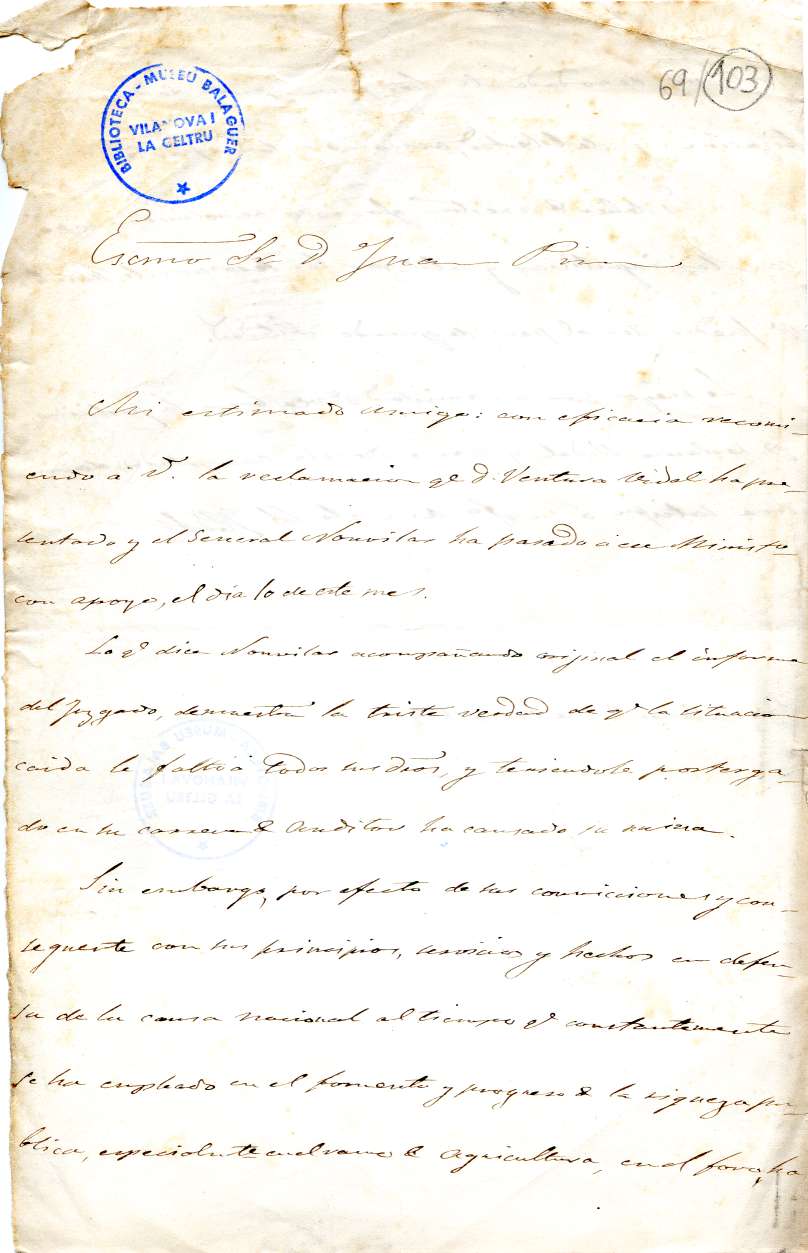 BIBLIOTECA - MUSEU BALAGUER
VILANOVA I
LA GELTRU
69/103
Escmo Sr D. Juan Prim
Mi estimado amigo: con eficacia recomi-
endo á V. la reclamacion qe D. Ventura Vidal ha pre-
sentado y el General Nouvilas ha pasado á ese Ministo
con apoyo, el dia 10 de este mes.
Lo qe dice Nouvilas acompañando orijinal el informe
del Juzgado, demuestra la triste verdad de qe la situacion
caida le faltó á todos sus dros, y teniendole posterga-
do en su carrera de Auditor ha causado su ruina.
Sin embargo, por efecto de sus convicciones y con-
sequente con sus principios, servicios y hechos en defen-
sa de la causa nacional al tiempo qe constantemente
se ha empleado en el fomento y progreso de la riqueza pu-
blica, especialmte en el ramo de Agricultura, en el foro, ha